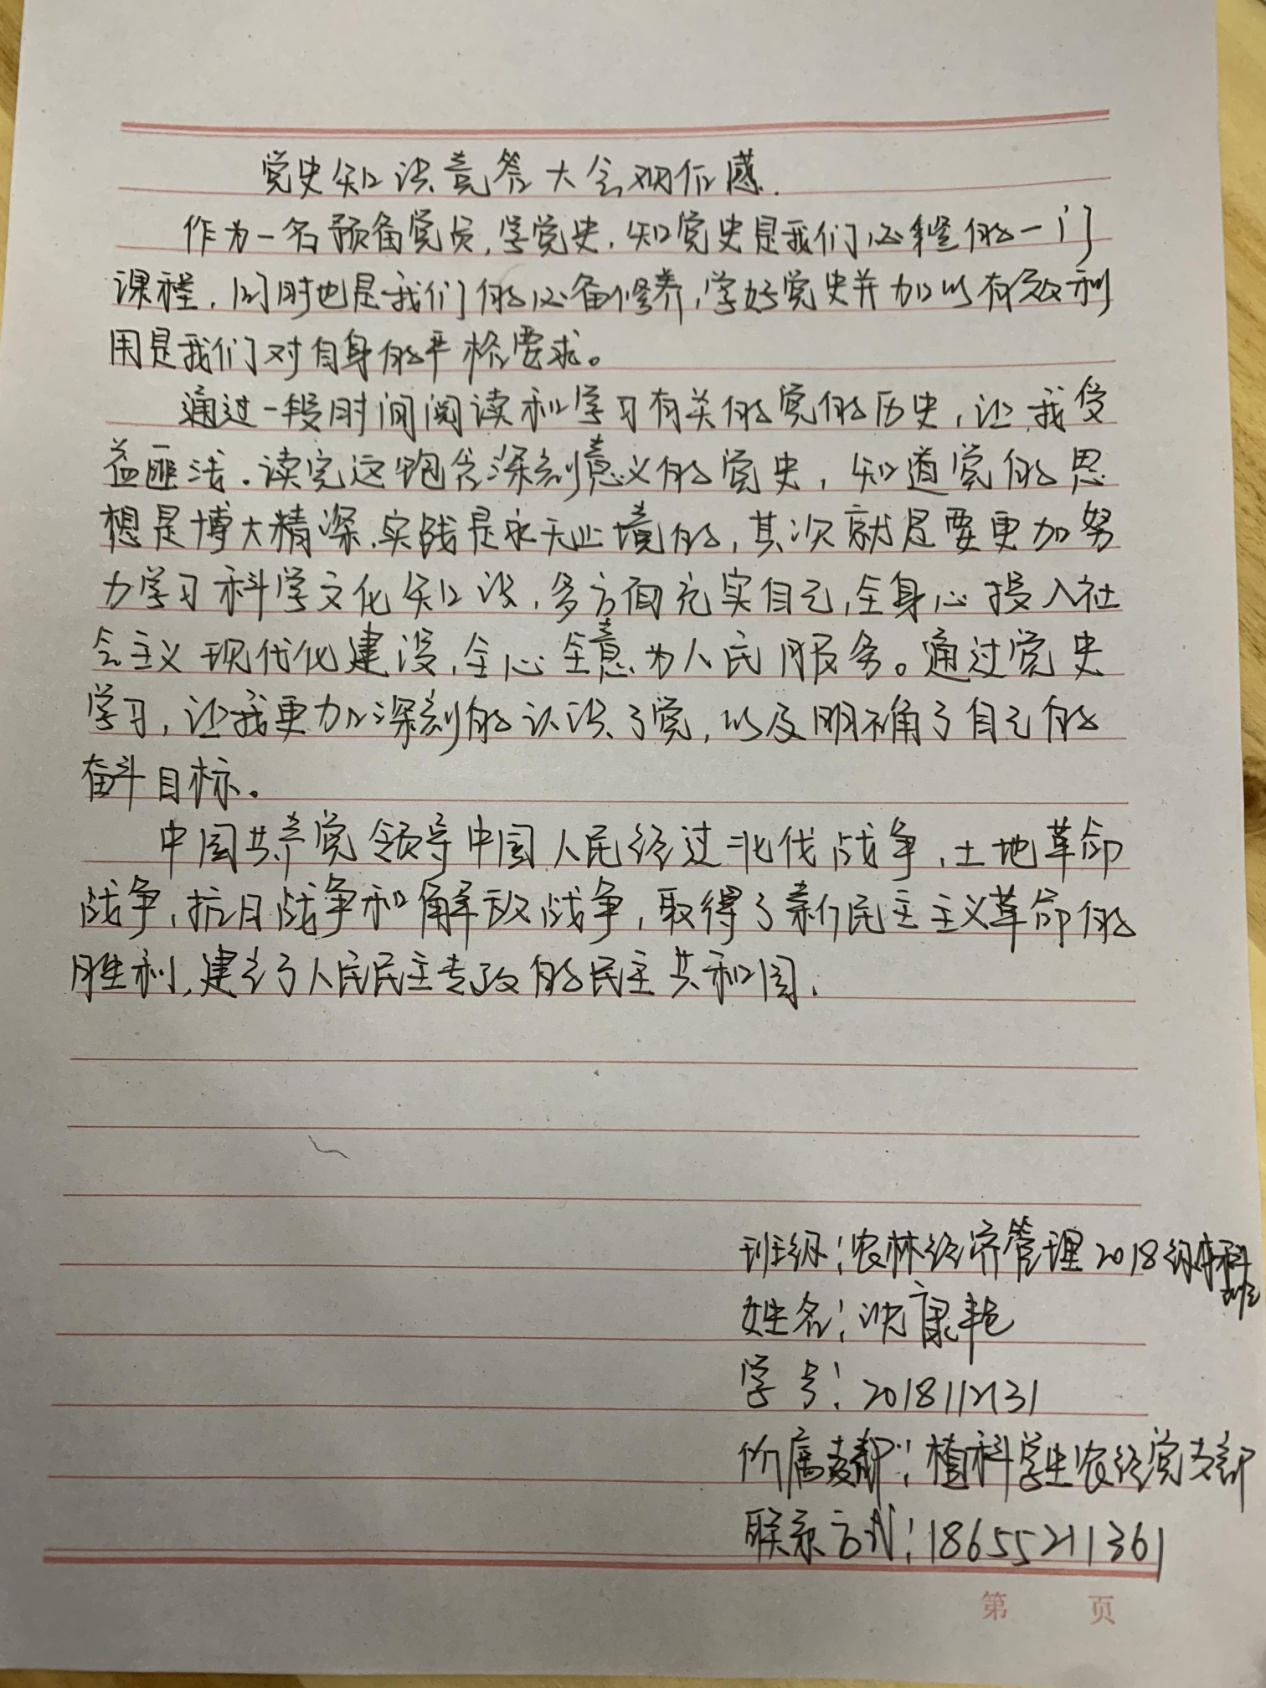 党史知识竞答大会观后感.
作为一名预备党员,学党史,知党史是我们必掌的一门
课程,同时也是我们的必备修养,学好党史并加以有效利
用是我们对自身的严格要求。
通过一段时间阅读和学习有关的党的历史,让我受
益匪浅.读完这饱含深刻意义的党史,知道党的思
想是博大精深.实践是永无止境的,其次就是要更加努
力学习科学文化知识,多方面充实自己,全身心投入社
会主义现代化建设,全心全意为人民服务。通过党史
学习,让我更加深刻的认识了党,以及明确了自己的
奋斗目标。
中国共产党领导中国人民经过北伐战争,土地革命
战争,抗日战争和解放战争,取得了新民主主义革命的
胜利,建立了人民民主专政的民主共和国.
班级:农林经济管理2018级本科班
姓名:沈康艳
学号:2018112131
所属支部:植科学生农经党支部
联系方式:18655211361
第 页